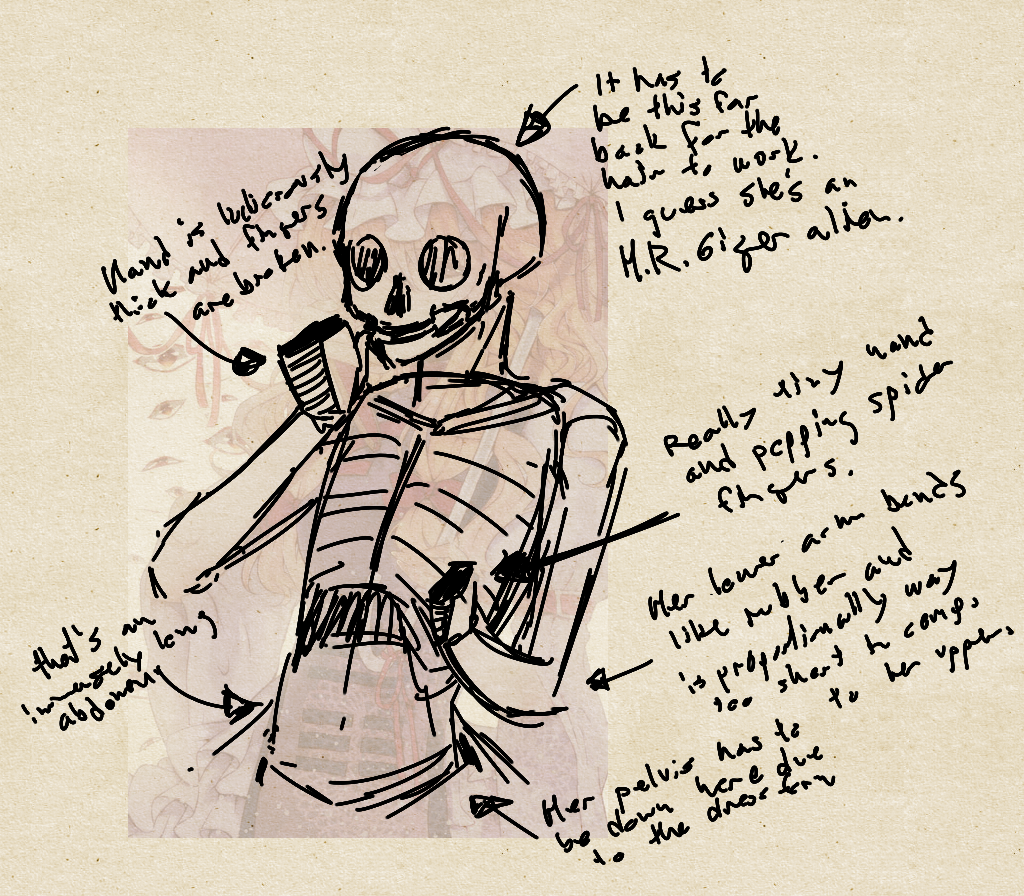 It has to
be this far
back for the
hair to work.
I guess she's an
H.R. Giger alien.
Hand is ludicrously
thick and fingers
are broken.
Really tiny hand
and popping spider
fingers.
Her lower arm bends
like rubber and
is proportionally way
too short to comp.
to her upper.
that's an
immensely long
abdomen
Her pelvis has to
be down here due
to the dress